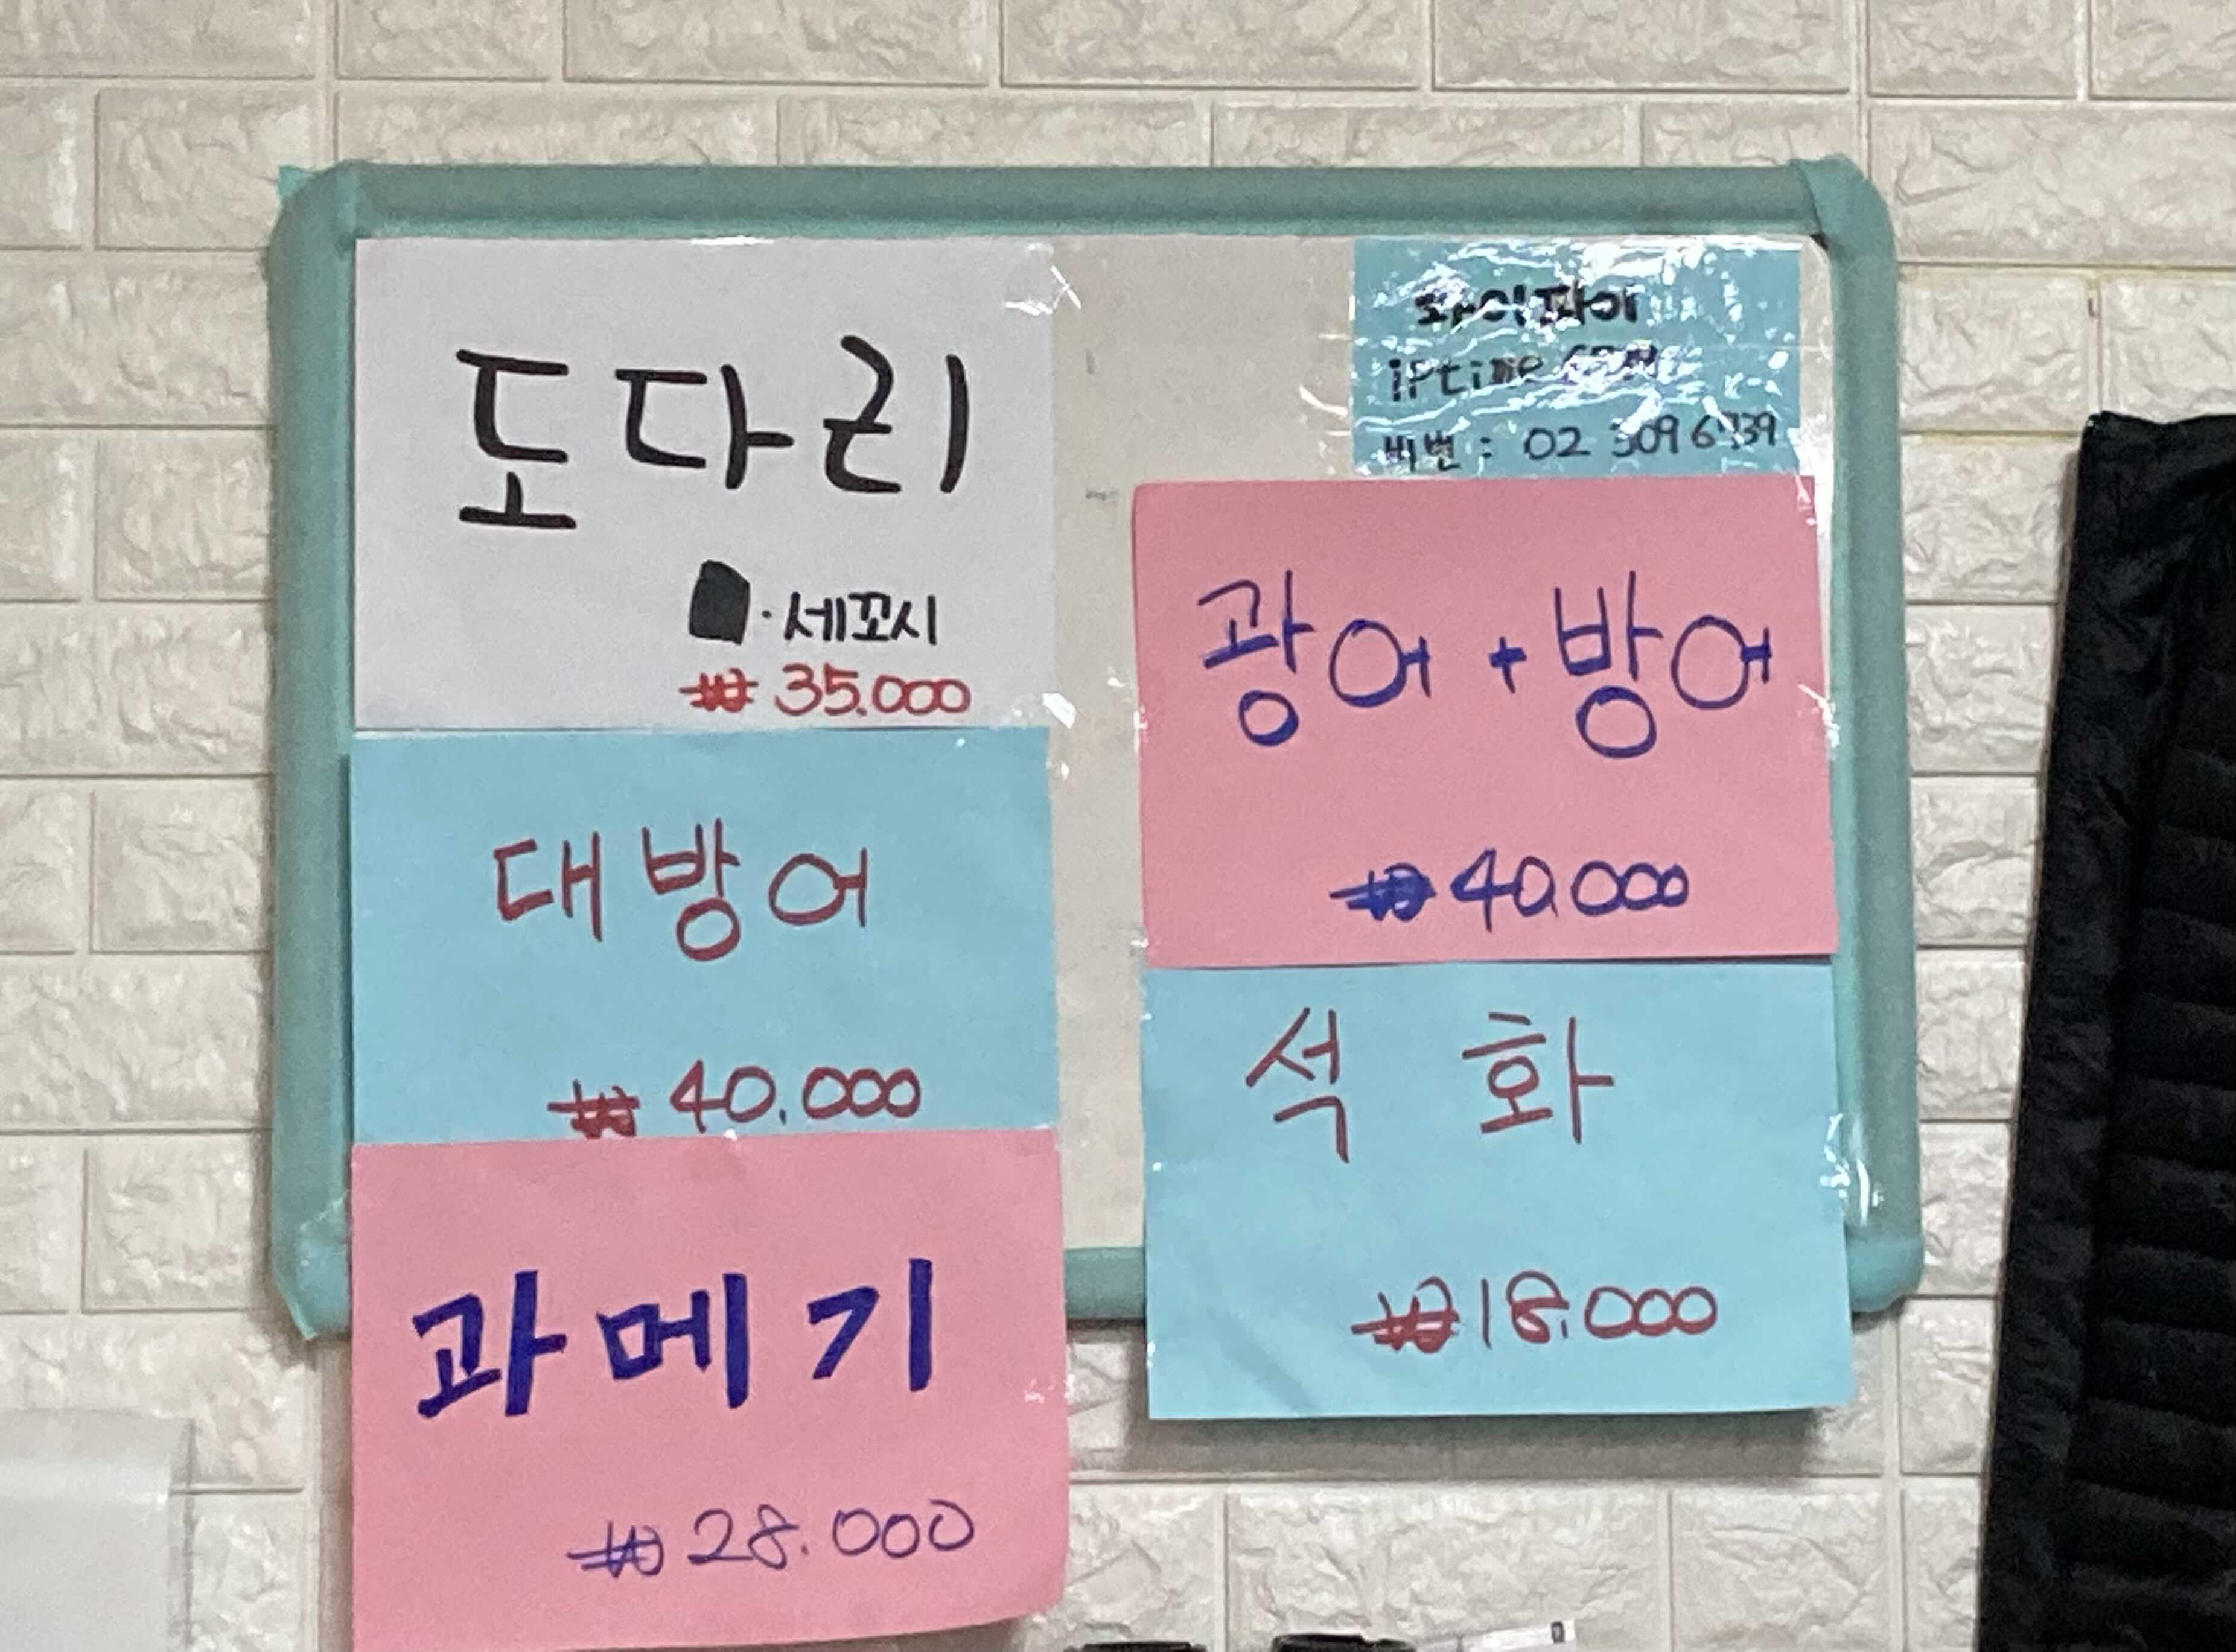 도다리
·세꼬시
₩ 35.000
대방어
₩ 40.000
과메기
₩ 28.000
와이파이
iptime
비번 : 02 309 6739
광어 + 방어
₩ 40.000
석화
₩ 18.000